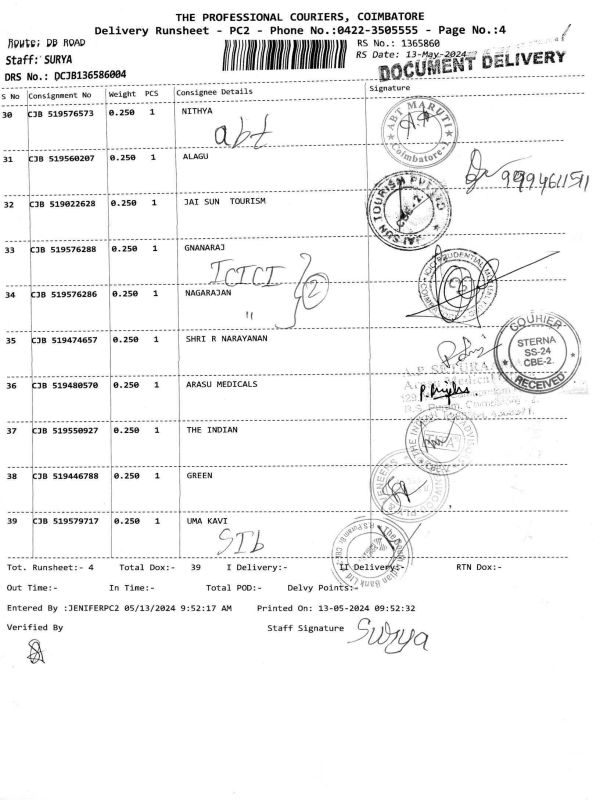 THE PROFESSIONAL COURIERS, COIMBATORE
Delivery Runsheet - PC2 - Phone No.:0422-3505555 - Page No.:4
Route: DB ROAD
RS No.: 1365860
Staff: SURYA
RS Date: 13-May-2024
DOCUMENT DELIVERY
DRS No.: DCJB136586004
S No Consignment No Weight PCS Consignee Details Signature
30 CJB 519576573 0.250 1 NITHYA
abt
ABT MARUTI
Coimbatore-1
31 CJB 519560207 0.250 1 ALAGU
32 CJB 519022628 0.250 1 JAI SUN TOURISM
JAI SUN TOURISM PVT LTD
CBE-2.
33 CJB 519576288 0.250 1 GNANARAJ
ICICI
2
34 CJB 519576286 0.250 1 NAGARAJAN
"
35 CJB 519474657 0.250 1 SHRI R NARAYANAN
COURIER
STERNA
SS-24
CBE-2.
RECEIVED
36 CJB 519480570 0.250 1 ARASU MEDICALS
37 CJB 519550927 0.250 1 THE INDIAN
38 CJB 519446788 0.250 1 GREEN
39 CJB 519579717 0.250 1 UMA KAVI
SIb
Tot. Runsheet:- 4 Total Dox:- 39 I Delivery:- II Delivery:- RTN Dox:-
Out Time:- In Time:- Total POD:- Delvy Points:-
Entered By :JENIFERPC2 05/13/2024 9:52:17 AM Printed On: 13-05-2024 09:52:32
Verified By Staff Signature Surya